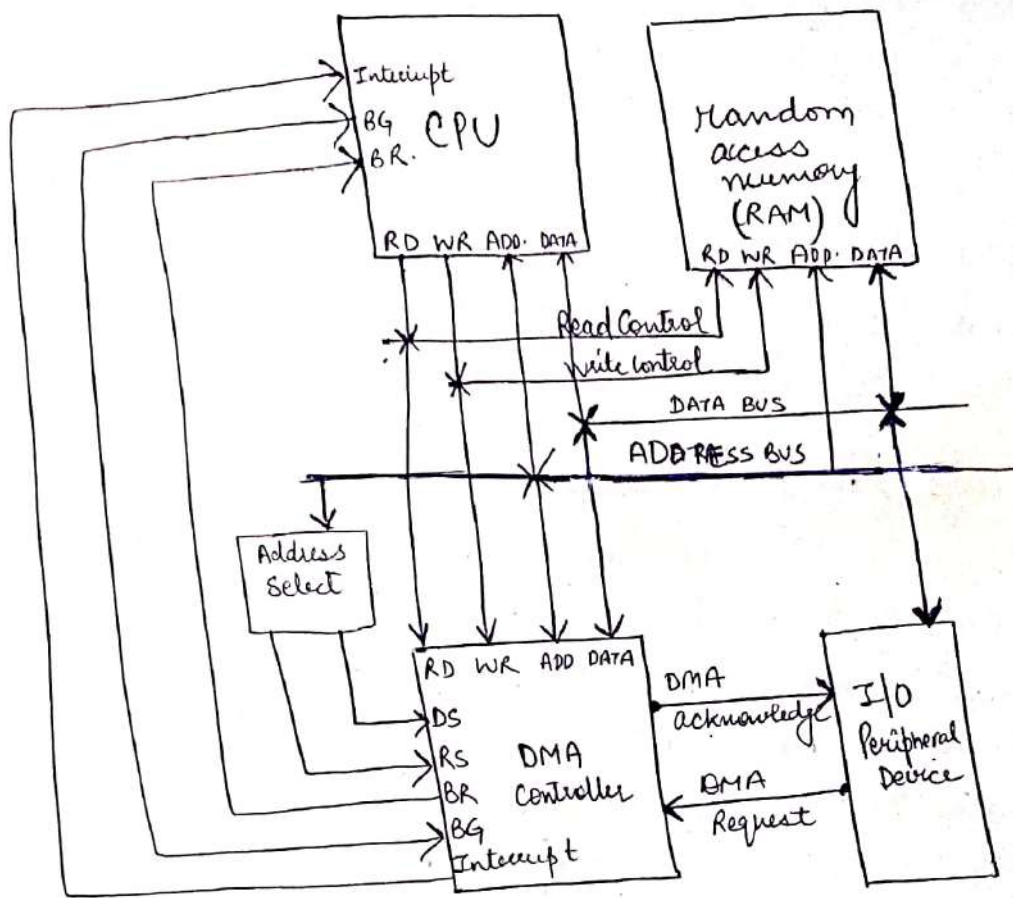 Interrupt
BG
CPU
BR.
RD WR ADD. DATA
Random
access
memory
(RAM)
RD WR ADD. DATA
Read Control
write control
DATA BUS
ADDRESS BUS
Address
Select
RD WR ADD DATA
DS
RS
BR
BG
Interrupt
DMA
Controller
DMA
acknowledge
DMA
Request
I/O
Peripheral
Device